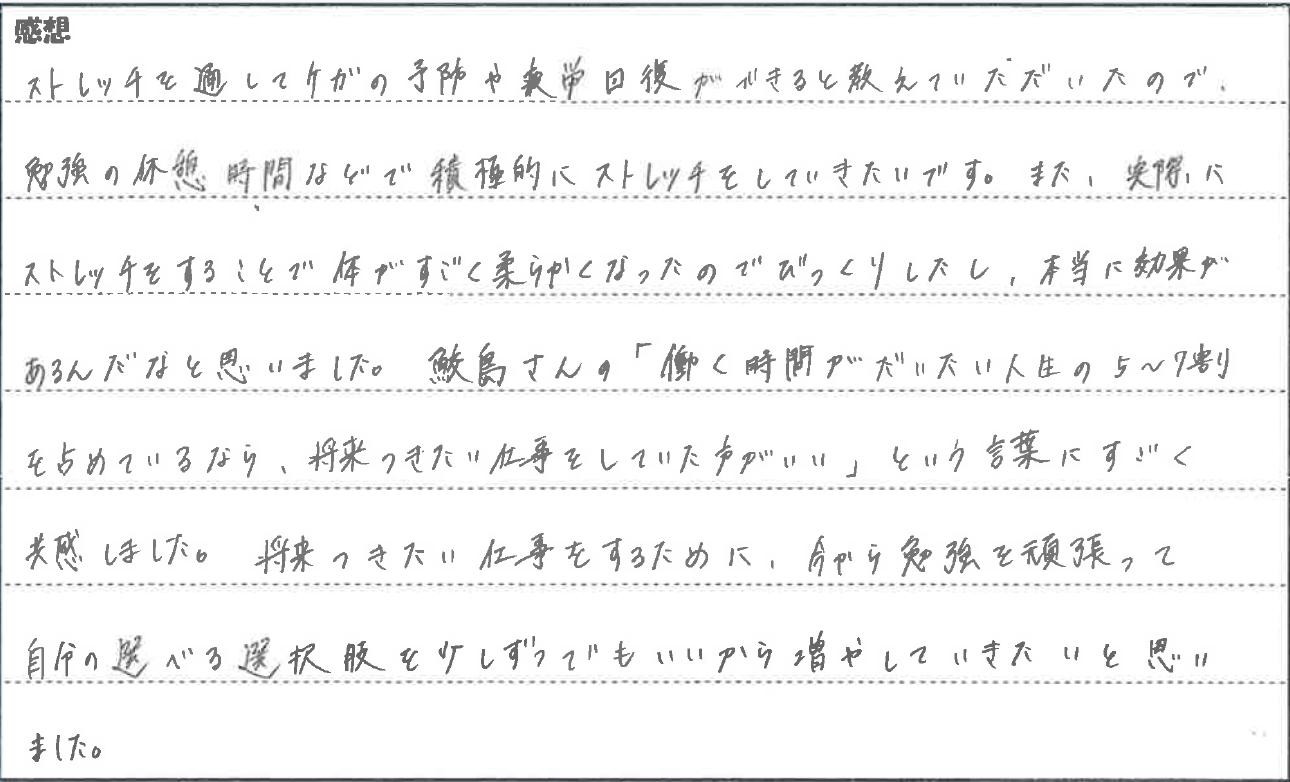 感想
ストレッチを通してケガの予防や疲労回復ができると教えていただいたので、
勉強の休憩時間などで積極的にストレッチをしていきたいです。また、実際に
ストレッチをすることで体がすごく柔らかくなったのでびっくりしたし、本当に効果が
あるんだなと思いました。鮫島さんの「働く時間がだいたい人生の5〜7割
を占めているなら、将来つきたい仕事をしていた方がいい」という言葉にすごく
共感しました。将来つきたい仕事をするために、今から勉強を頑張って
自分の選べる選択肢を少しずつでもいいから増やしていきたいと思い
ました。